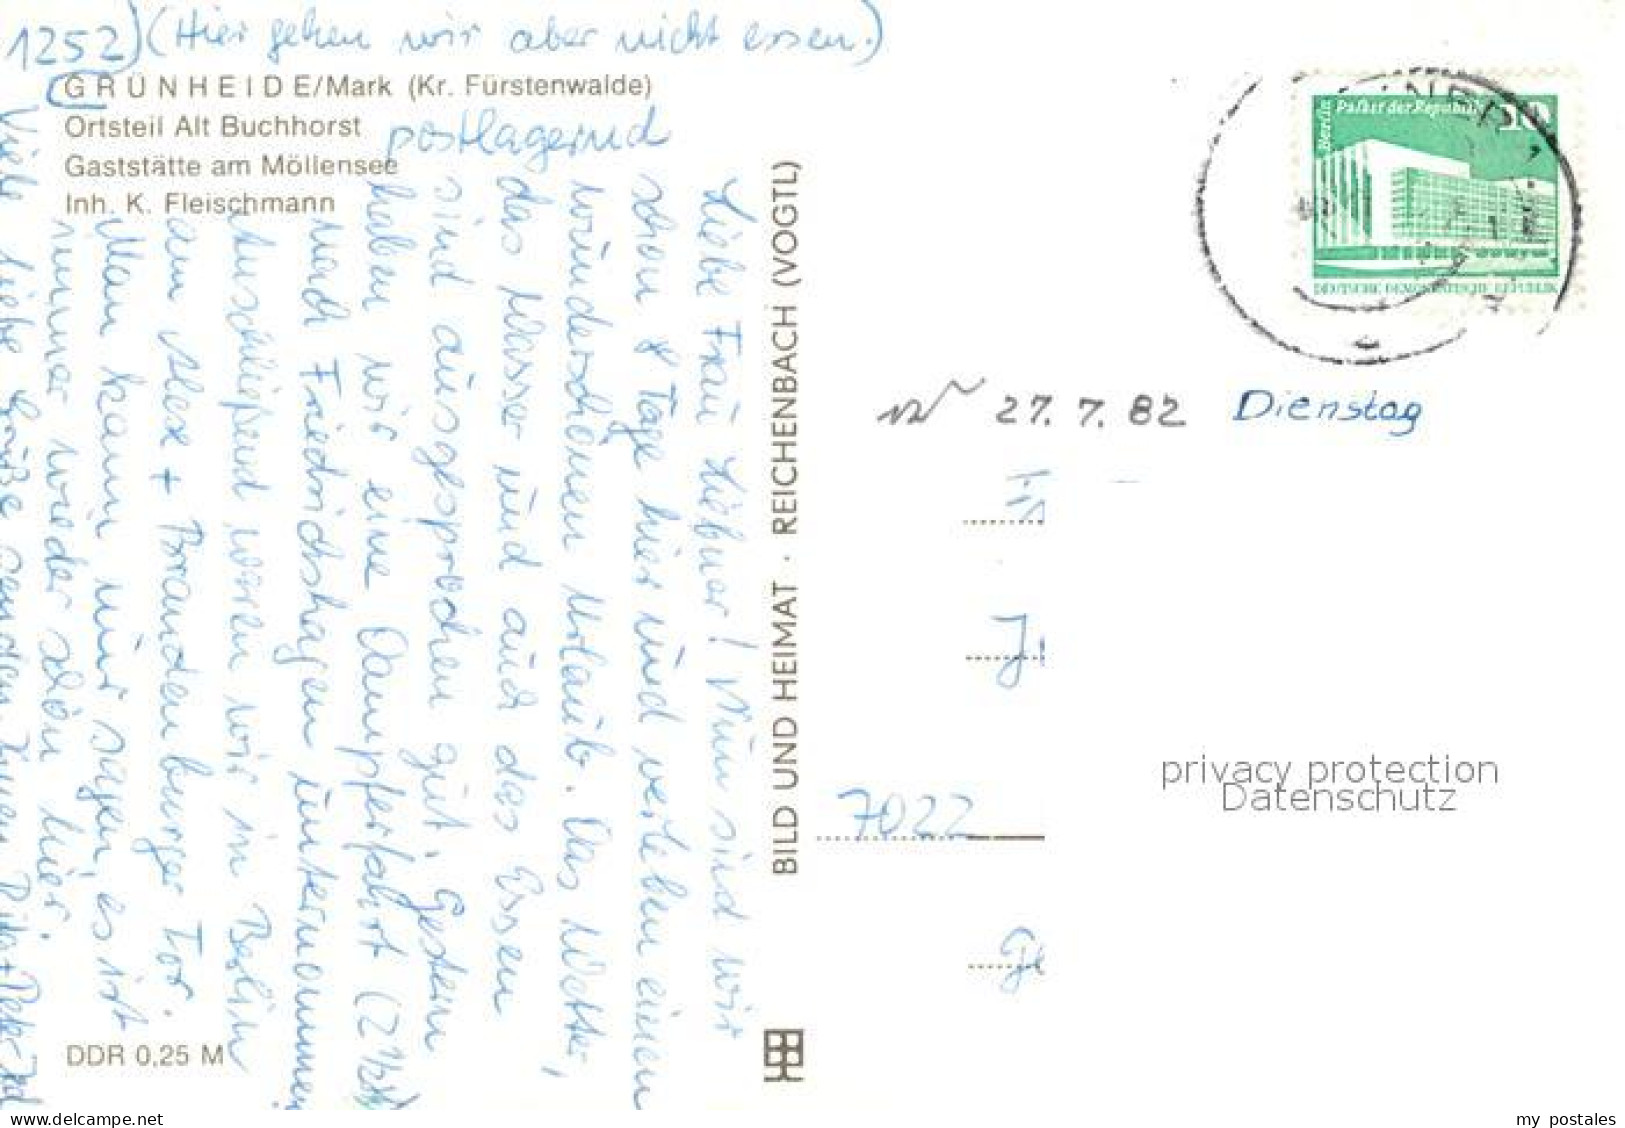 1252) (Hier gehen wir aber nicht essen.)
GRÜNHEIDE/Mark (Kr. Fürstenwalde)
Ortsteil Alt Buchhorst
postlagernd
Gaststätte am Möllensee
Inh. K. Fleischmann
Liebe Frau Liebner! Nun sind wir
schon 8 Tage hier und verleben einen
wunderschönen Urlaub. Das Wetter,
das Wasser und auch das Essen
sind ausgesprochen gut. Gestern
haben wir eine Dampferfahrt (2 Std)
nach Friedrichshagen unternommen
Anschließend waren wir in Berlin
am Alex + Brandenburger Tor.
Man kann nur sagen, es ist
immer wieder schön hier.
Viele liebe Grüße senden Ihnen
DDR 0,25 M
BILD UND HEIMAT · REICHENBACH (VOGTL)
Berlin Palast der Republik 10
27. 7. 82 Dienstag
7022
privacy protection
Datenschutz
www.delcampe.net
my_postales